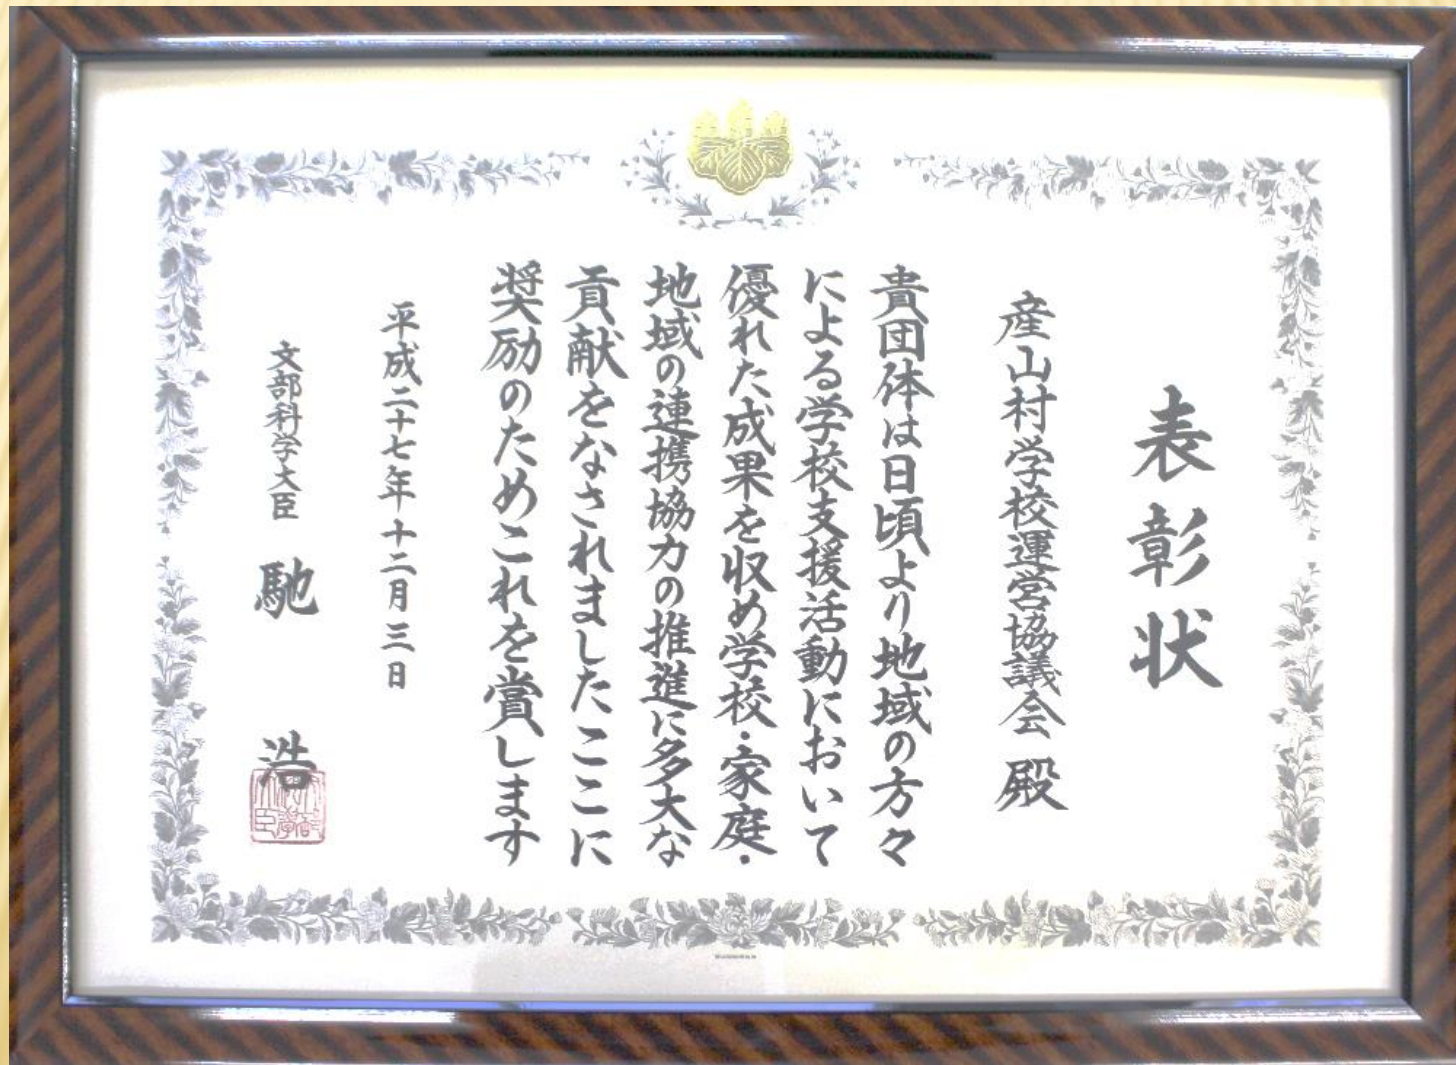 表彰状
産山村学校運営協議会 殿
貴団体は日頃より地域の方々
による学校支援活動において
優れた成果を収め学校・家庭・
地域の連携協力の推進に多大な
貢献をなされましたここに
奨励のためこれを賞します
平成二十七年十二月三日
文部科学大臣 馳 浩